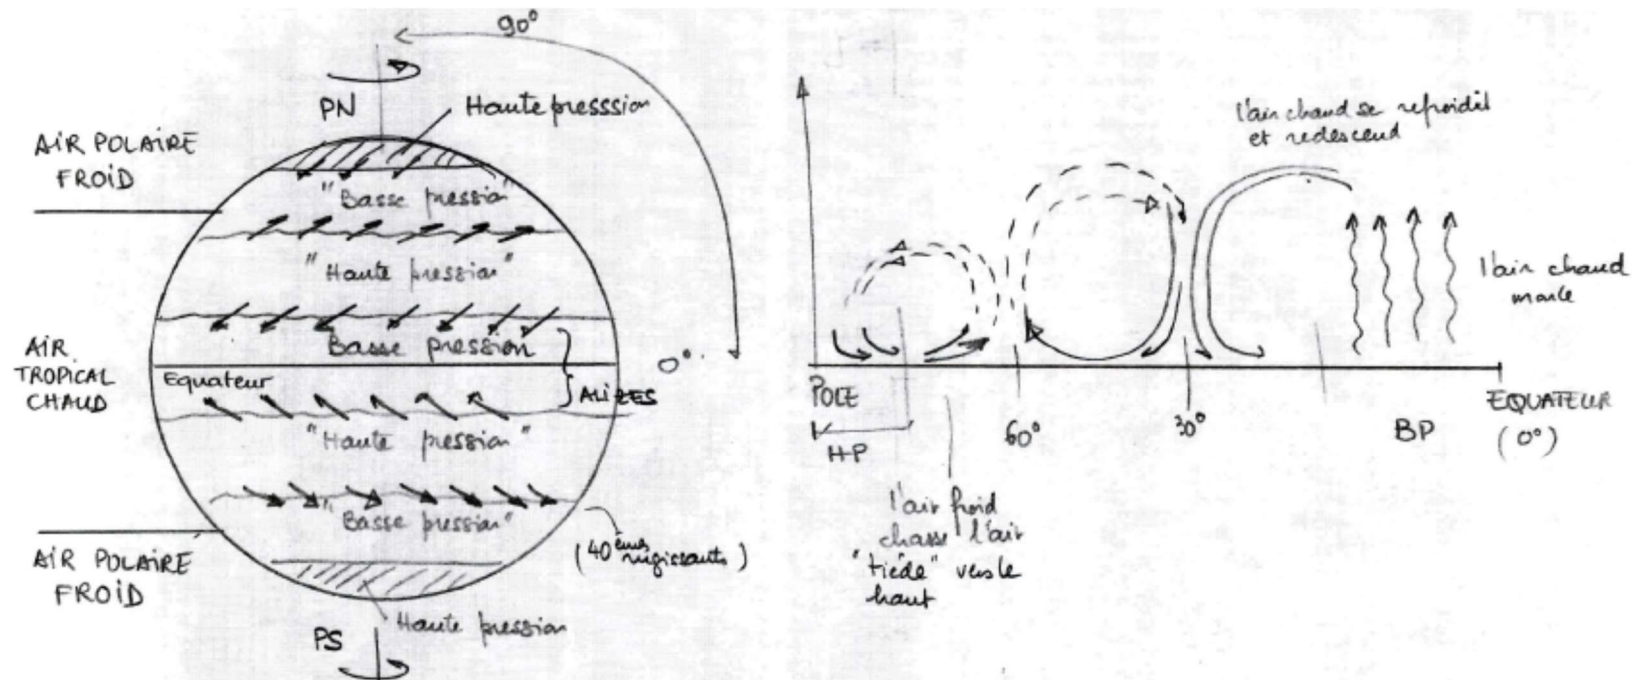 90°
PN
Haute presssion
AIR POLAIRE
FROID
"Basse pression"
"Haute pression"
Basse pression
AIR
TROPICAL
CHAUD
Equateur
0°
ALIZES
"Haute pression"
"Basse pression"
(40èmes rugissants)
AIR POLAIRE
FROID
Haute pression
PS
l'air chaud se refroidit
et redescend
l'air chaud
monte
POLE
60°
30°
EQUATEUR
(0°)
HP
BP
l'air froid
chasse l'air
"tiède" vers le
haut